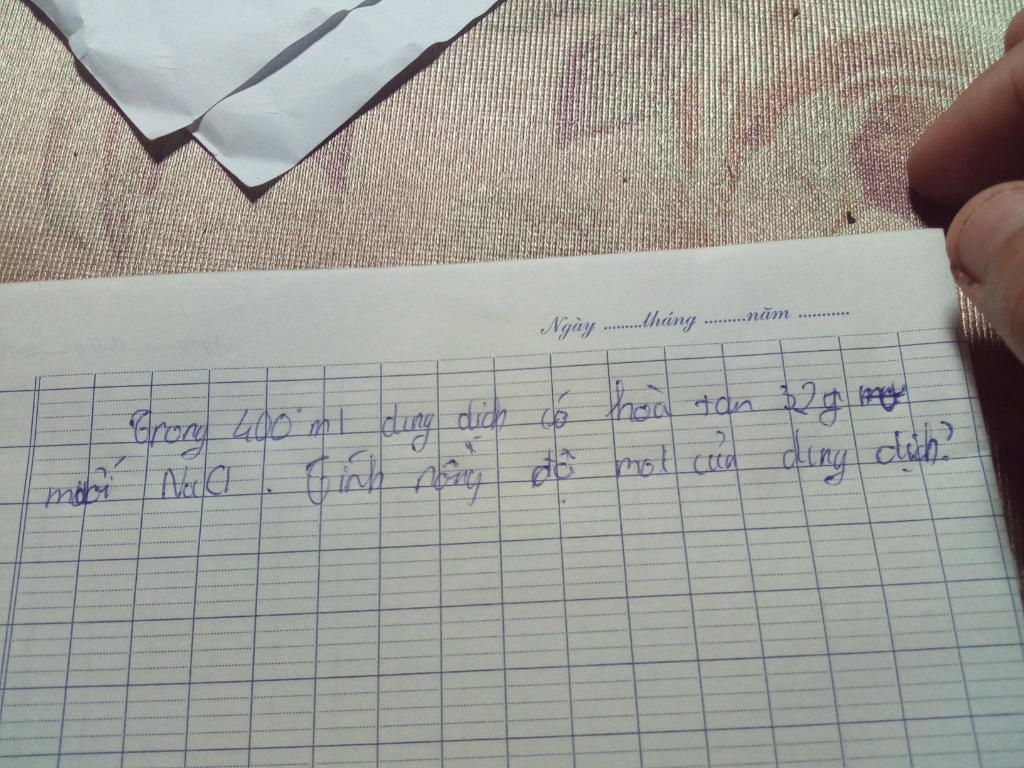 Ngày ........tháng .........năm ...........
Trong 400 ml dung dịch có hoà tan 32g
muối NaCl. Tính nồng độ mol của dung dịch?